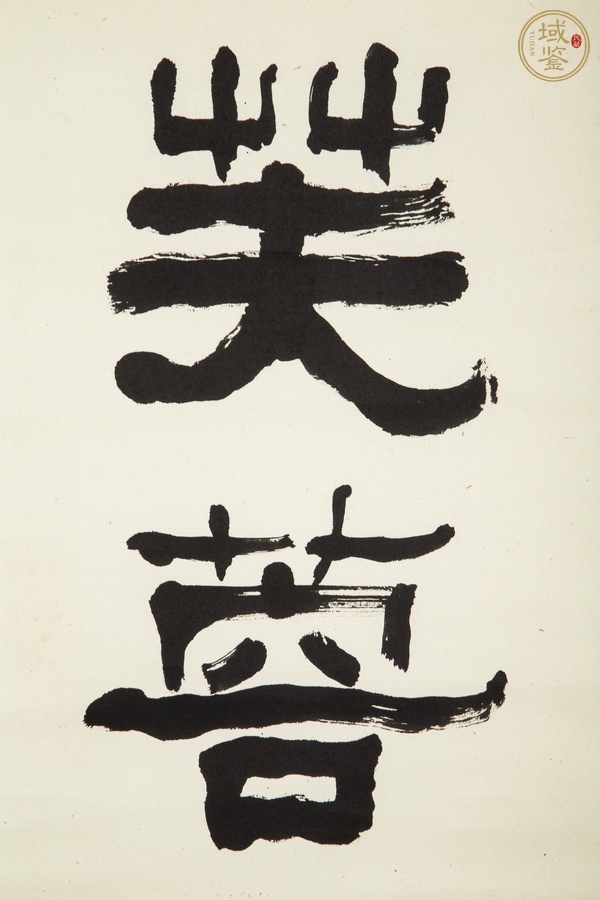 芙
蓉
域鉴
YUJIAN